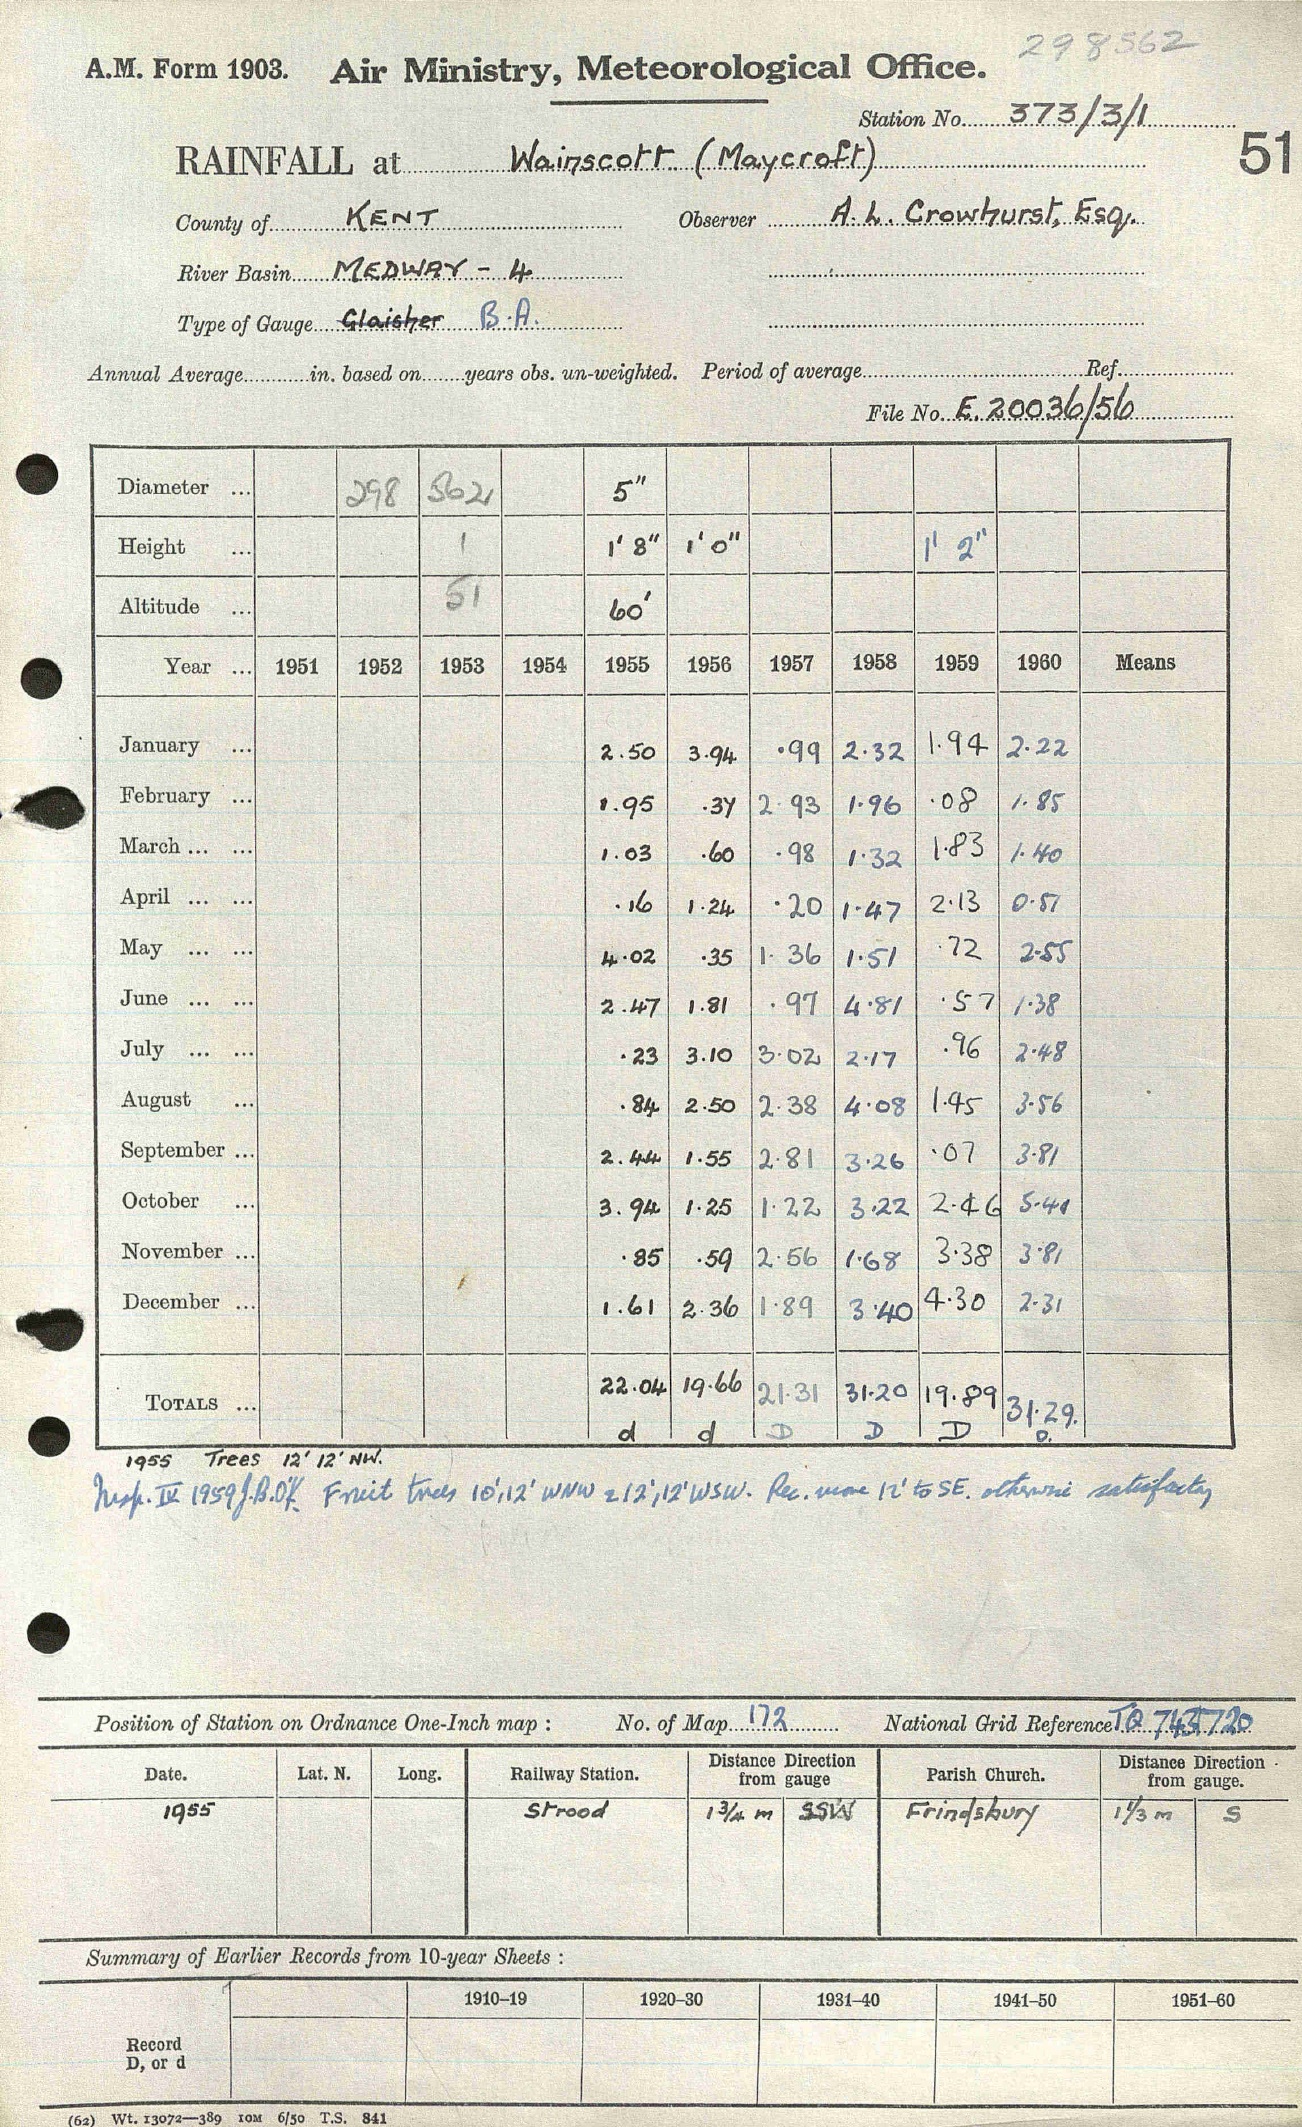 298562
A.M. Form 1903. Air Ministry, Meteorological Office.
Station No. 373/3/1
51
RAINFALL at Wainscott (Maycroft)
County of KENT Observer A. L. Crowhurst, Esq.
River Basin MEDWAY - 4
Type of Gauge Glaisher B.A.
Annual Average in. based on years obs. un-weighted. Period of average Ref.
File No. E. 20036/56
Diameter ... 298 562 5"
Height ... 1 1' 8" 1' 0" 1' 2"
Altitude ... 51 60'
Year ... 1951 1952 1953 1954 1955 1956 1957 1958 1959 1960 Means
January ... 2.50 3.94 .99 2.32 1.94 2.22
February ... 1.95 .37 2.93 1.96 .08 1.85
March ... ... 1.03 .60 .98 1.32 1.83 1.40
April ... ... .16 1.24 .20 1.47 2.13 0.51
May ... ... 4.02 .35 1.36 1.51 .72 2.55
June ... ... 2.47 1.81 .97 4.81 .57 1.38
July ... ... .23 3.10 3.02 2.17 .96 2.48
August ... .84 2.50 2.38 4.08 1.45 3.56
September ... 2.44 1.55 2.81 3.26 .07 3.81
October ... 3.94 1.25 1.22 3.22 2.46 5.41
November ... .85 .59 2.56 1.68 3.38 3.81
December ... 1.61 2.36 1.89 3.40 4.30 2.31
TOTALS ... 22.04 19.66 21.31 31.20 19.89 31.29.
d d D D D D.
1955 Trees 12' 12' NW.
Insp. IV 1959 J.B.O'K. Fruit trees 10', 12' WNW & 12', 12' WSW. Rec. move 12' to SE. otherwise satisfactory
Position of Station on Ordnance One-Inch map : No. of Map 172 National Grid Reference TQ 743720
Date. Lat. N. Long. Railway Station. Distance Direction from gauge Parish Church. Distance Direction from gauge.
1955 Strood 1 3/4 m SSW Frindsbury 1 1/3 m S
Summary of Earlier Records from 10-year Sheets :
1910–19 1920–30 1931–40 1941–50 1951–60
Record
D, or d
(62) Wt. 13072—389 10M 6/50 T.S. 841